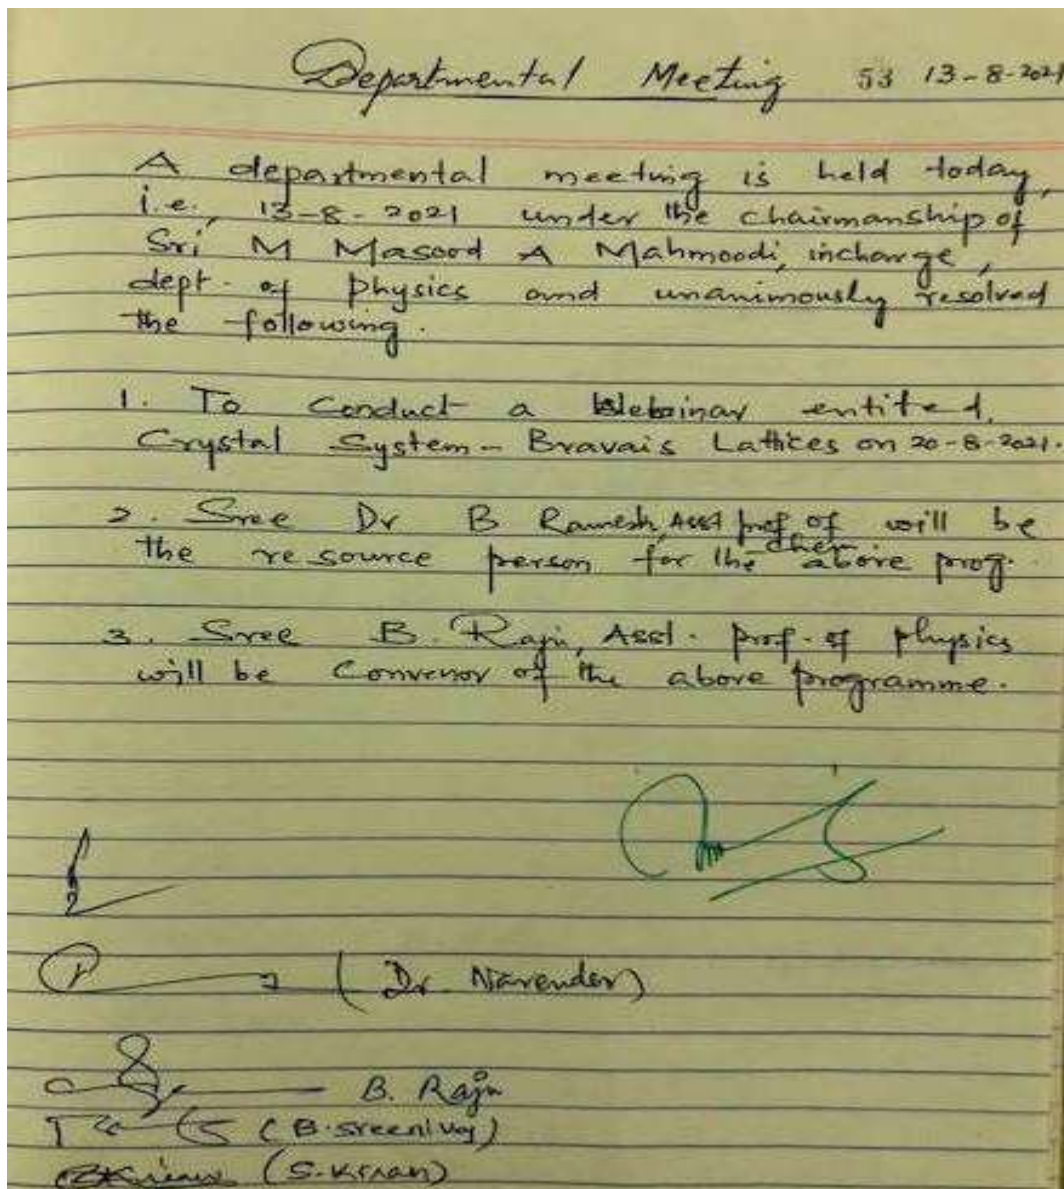 Departmental Meeting 53 13-8-2021
A departmental meeting is held today,
i.e., 13-8-2021 under the chairmanship of
Sri M Masood A Mahmoodi, incharge,
dept. of physics and unanimously resolved
the following.
1. To Conduct a Webinar entited,
Crystal System - Bravais Lattices on 20-8-2021.
2. Sree Dr B Ramesh, Asst prof of chem will be
the resource person for the above prog.
3. Sree B. Raju, Asst. prof. of physics
will be Convenor of the above programme.
(Dr. Narender)
B. Raju
(B. Sreenivas)
(S. Kiran)